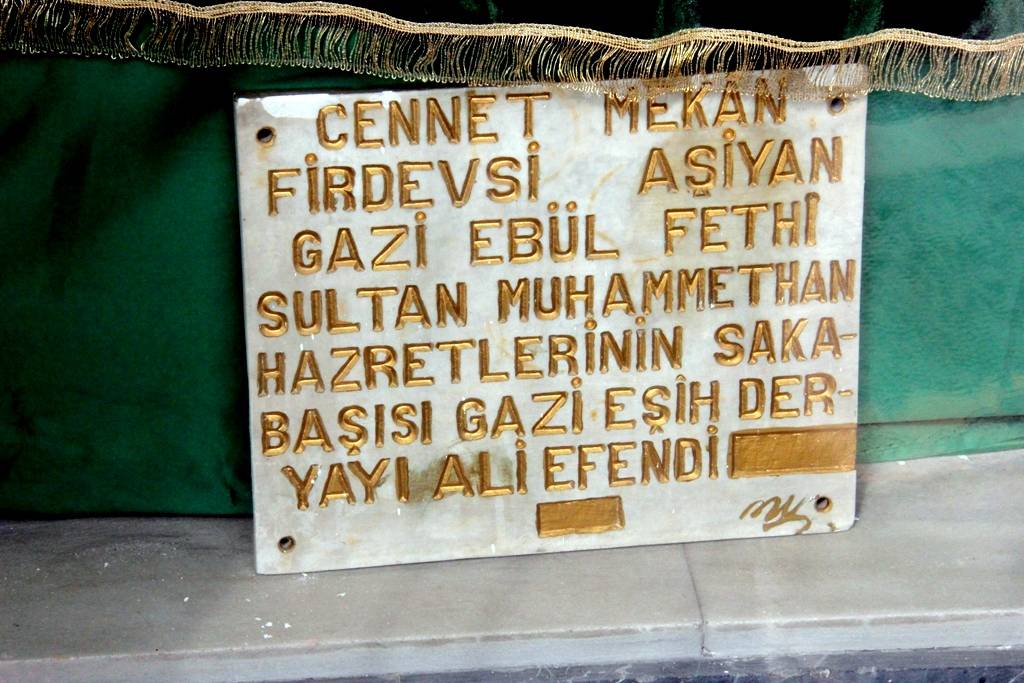 CENNET MEKÂN
FİRDEVSİ AŞİYAN
GAZİ EBÜL FETHİ
SULTAN MUHAMMETHAN
HAZRETLERİNİN SAKA-
BAŞISI GAZİ EŞİH DER-
YAYI ALİ EFENDİ